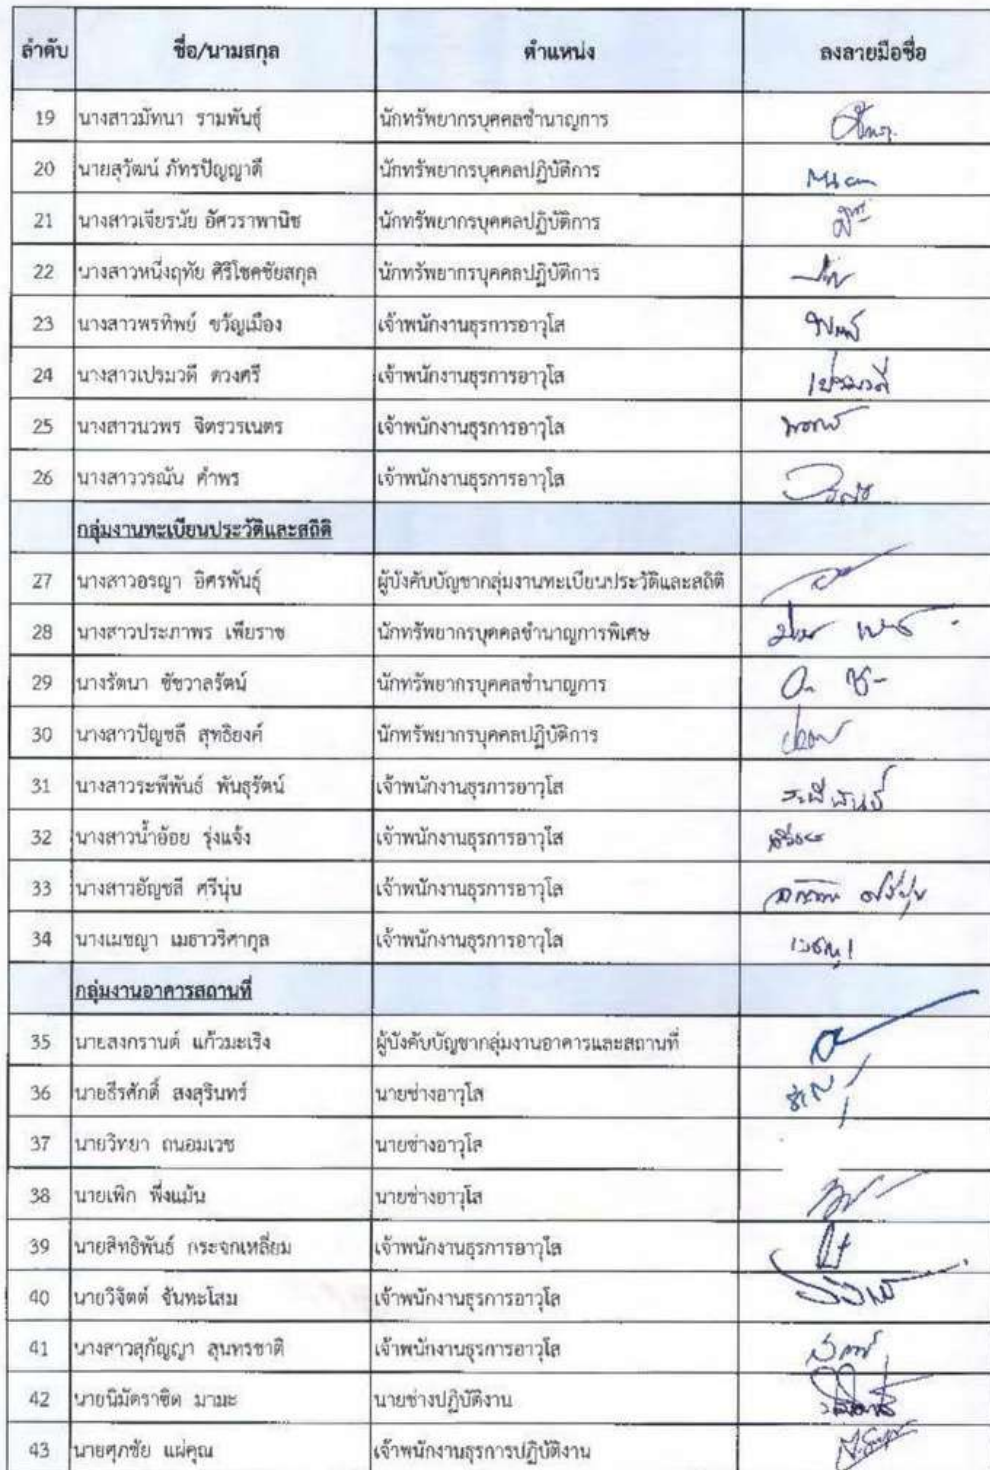 ลำดับ ชื่อ/นามสกุล ตำแหน่ง ลงลายมือชื่อ
19 นางสาวมัทนา รามพันธุ์ นักทรัพยากรบุคคลชำนาญการ
20 นายสุวัฒน์ ภัทรปัญญาดี นักทรัพยากรบุคคลปฏิบัติการ
21 นางสาวเจียรนัย อัศวราพานิช นักทรัพยากรบุคคลปฏิบัติการ
22 นางสาวหนึ่งฤทัย ศิริโชคชัยสกุล นักทรัพยากรบุคคลปฏิบัติการ
23 นางสาวพรทิพย์ ขวัญเมือง เจ้าพนักงานธุรการอาวุโส
24 นางสาวเปรมวดี ดวงศรี เจ้าพนักงานธุรการอาวุโส เปรมวดี
25 นางสาวนวพร จิตรวรเนตร เจ้าพนักงานธุรการอาวุโส
26 นางสาววรณัน คำพร เจ้าพนักงานธุรการอาวุโส
กลุ่มงานทะเบียนประวัติและสถิติ
27 นางสาวอรญา อิศรพันธุ์ ผู้บังคับบัญชากลุ่มงานทะเบียนประวัติและสถิติ
28 นางสาวประภาพร เพียราช นักทรัพยากรบุคคลชำนาญการพิเศษ
29 นางรัตนา ชัชวาลรัตน์ นักทรัพยากรบุคคลชำนาญการ
30 นางสาวปัญชลี สุทธิยงค์ นักทรัพยากรบุคคลปฏิบัติการ
31 นางสาวระพีพันธ์ พันธุรัตน์ เจ้าพนักงานธุรการอาวุโส ระพีพันธ์
32 นางสาวน้ำอ้อย รุ่งแจ้ง เจ้าพนักงานธุรการอาวุโส
33 นางสาวอัญชลี ศรีนุ่น เจ้าพนักงานธุรการอาวุโส
34 นางเมชญา เมธาวริศากุล เจ้าพนักงานธุรการอาวุโส
กลุ่มงานอาคารสถานที่
35 นายสงกรานต์ แก้วมะเริง ผู้บังคับบัญชากลุ่มงานอาคารและสถานที่
36 นายธีรศักดิ์ สงสุรินทร์ นายช่างอาวุโส
37 นายวิทยา ถนอมเวช นายช่างอาวุโส
38 นายเพิก พึ่งแม้น นายช่างอาวุโส
39 นายสิทธิพันธ์ กระจกเหลี่ยม เจ้าพนักงานธุรการอาวุโส
40 นายวิจิตต์ จันทะโสม เจ้าพนักงานธุรการอาวุโส
41 นางสาวสุกัญญา สุนทรชาติ เจ้าพนักงานธุรการอาวุโส
42 นายนิมัตราซิด มามะ นายช่างปฏิบัติงาน
43 นายศุภชัย แผ่คุณ เจ้าพนักงานธุรการปฏิบัติงาน